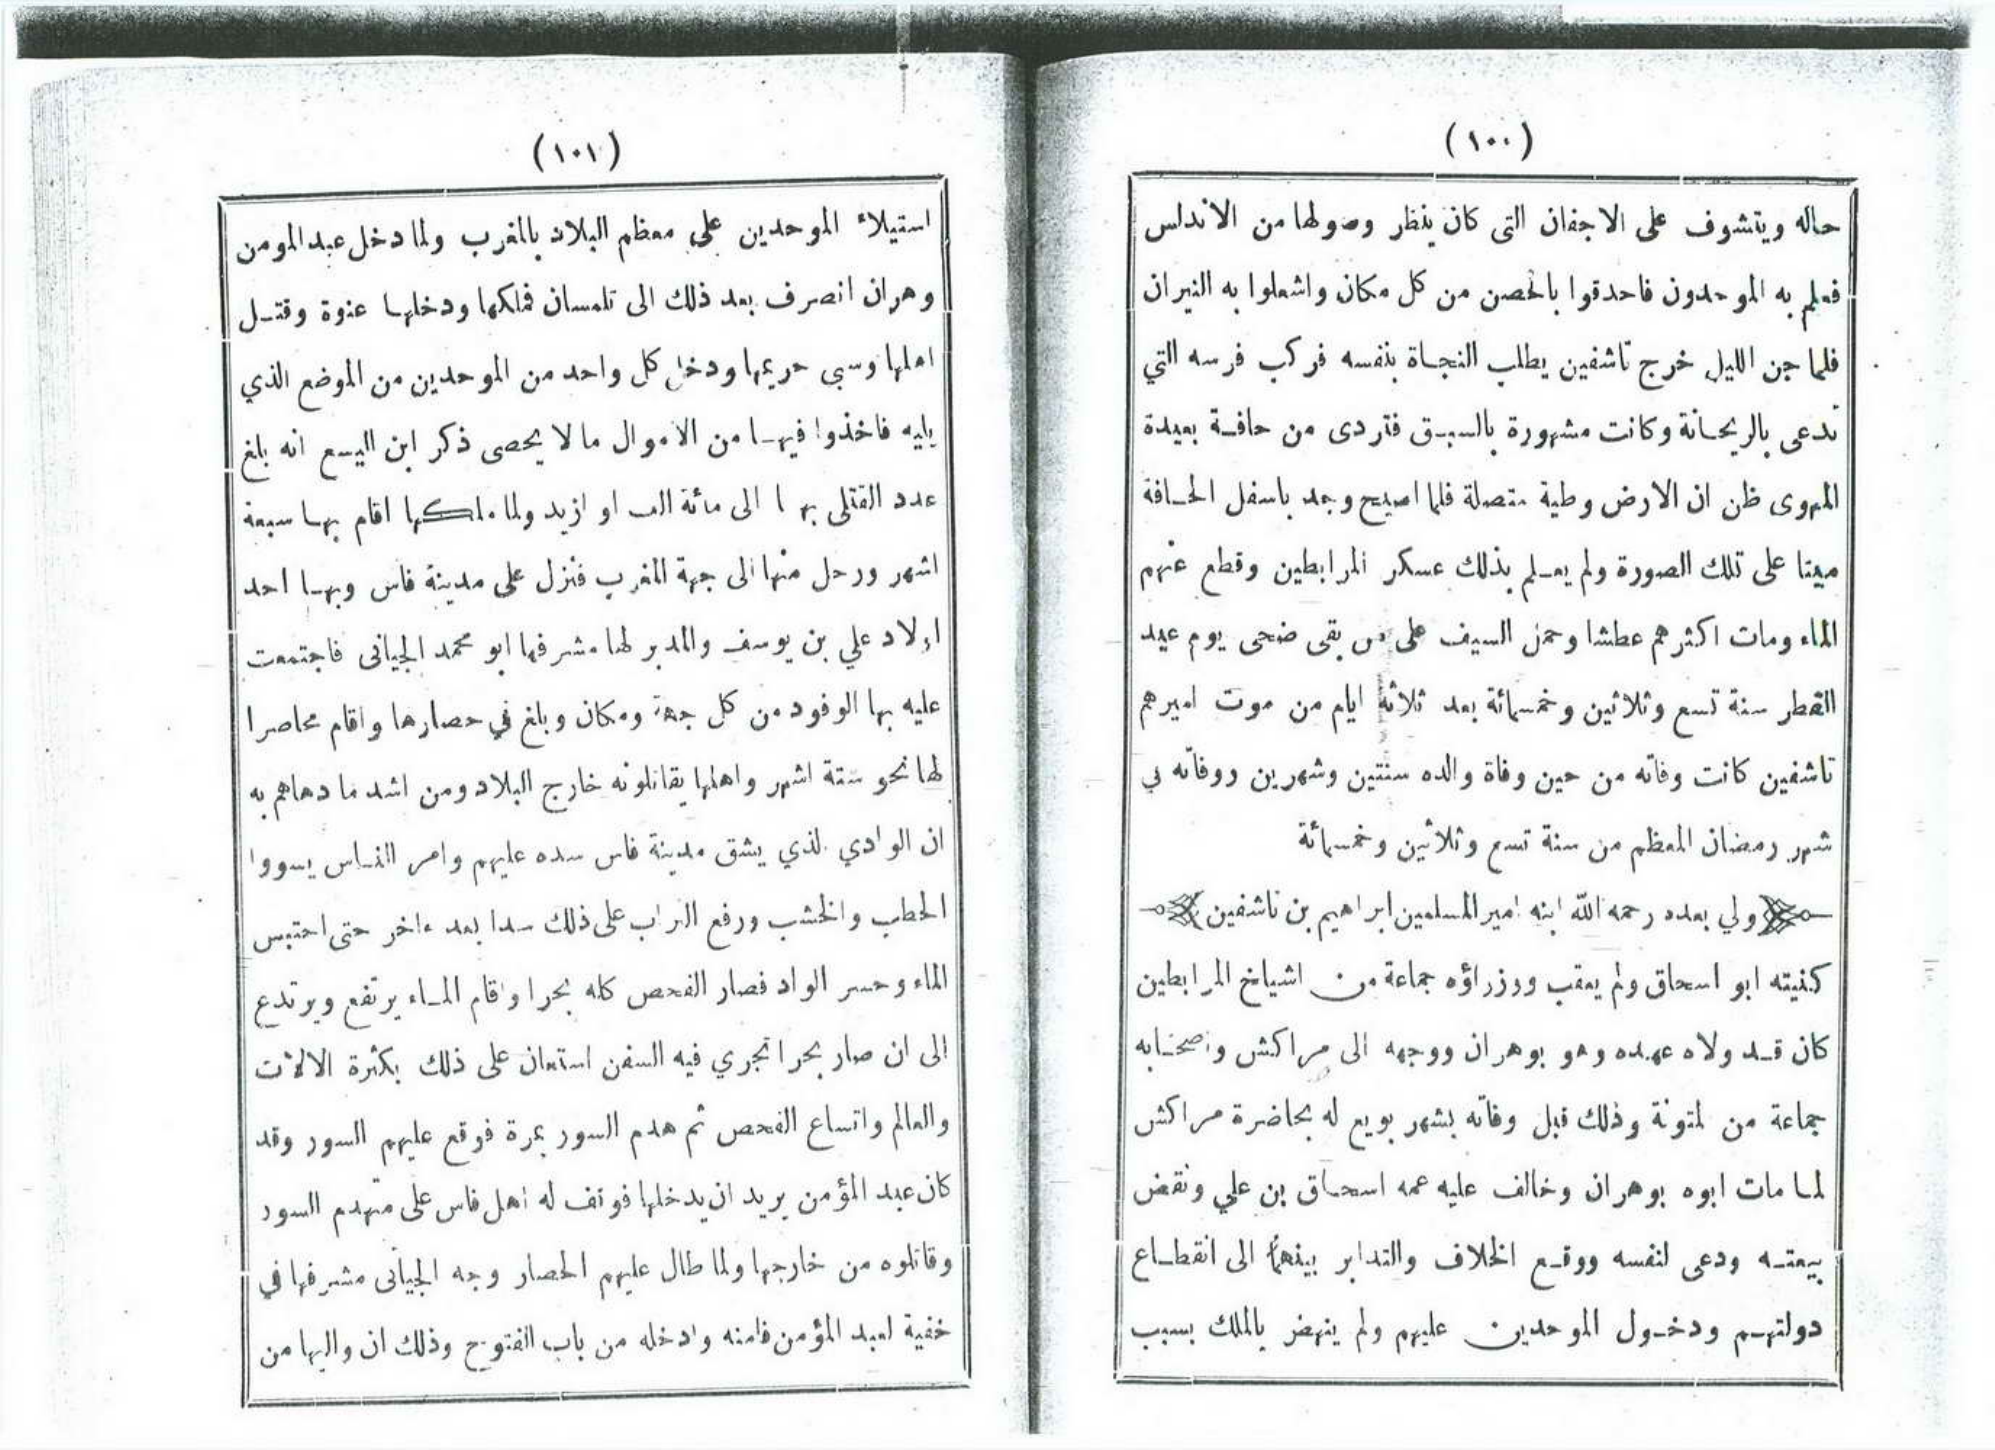 (١٠٠)
حاله ويتشوف على الاجفان التى كان ينظر وصولها من الاندلس
فعلم به الموحدون فاحدقوا بالحصن من كل مكان واشعلوا به النيران
فلما جن الليل خرج تاشفين يطلب النجاة بنفسه فركب فرسه التي
تدعى بالريحانة وكانت مشهورة بالسبق فتردى من حافة بعيدة
المهوى ظن ان الارض وطية متصلة فلما اصبح وجد باسفل الحافة
ميتا على تلك الصورة ولم يعلم بذلك عسكر المرابطين وقطع عنهم
الماء ومات اكثرهم عطشا وحمل السيف على من بقى ضحى يوم عيد
الفطر سنة تسع وثلاثين وخمسمائة بعد ثلاثة ايام من موت اميرهم
تاشفين كانت وفاته من حين وفاة والده سنتين وشهرين ووفاته في
شهر رمضان المعظم من سنة تسع وثلاثين وخمسمائة
ولي بعده رحمه الله ابنه امير المسلمين ابراهيم بن تاشفين
كنيته ابو اسحاق ولم يعقب ووزراؤه جماعة من اشياخ المرابطين
كان قد ولاه عهده وهو بوهران ووجهه الى مراكش واصحابه
جماعة من لمتونة وذلك قبل وفاته بشهر بويع له بحاضرة مراكش
لما مات ابوه بوهران وخالف عليه عمه اسحاق بن علي ونقض
بيعته ودعى لنفسه ووقع الخلاف والتدابر بينهما الى انقطاع
دولتهم ودخول الموحدين عليهم ولم ينهض بالملك بسبب
(١٠١)
استيلاء الموحدين على معظم البلاد بالمغرب ولما دخل عبد المومن
وهران انصرف بعد ذلك الى تلمسان فملكها ودخلها عنوة وقتل
اهلها وسبى حريمها ودخل كل واحد من الموحدين من الموضع الذي
يليه فاخذوا فيها من الاموال ما لا يحصى ذكر ابن اليسع انه بلغ
عدد القتلى بها الى مائة الف او ازيد ولما ملكها اقام بها سبعة
اشهر ورحل منها الى جهة المغرب فنزل على مدينة فاس وبها احد
اولاد علي بن يوسف والمدبر لها مشرفها ابو محمد الجيانى فاجتمعت
عليه بها الوفود من كل جهة ومكان وبلغ في حصارها واقام محاصرا
لها نحو ستة اشهر واهلها يقاتلونه خارج البلاد ومن اشد ما دهاهم به
ان الوادي الذي يشق مدينة فاس سده عليهم وامر الناس يسووا
الحطب والخشب ورفع التراب على ذلك سدا بعد ءاخر حتى احتبس
الماء وحسر الواد فصار الفحص كله بحرا واقام الماء يرتفع ويرتدع
الى ان صار بحرا تجري فيه السفن استعان على ذلك بكثرة الالات
والعالم واتساع الفحص ثم هدم السور بمرة فوقع عليهم السور وقد
كان عبد المؤمن يريد ان يدخلها فوقف له اهل فاس على متهدم السور
وقاتلوه من خارجها ولما طال عليهم الحصار وجه الجيانى مشرفها في
خفية لعبد المؤمن فامنه وادخله من باب الفتوح وذلك ان واليها من